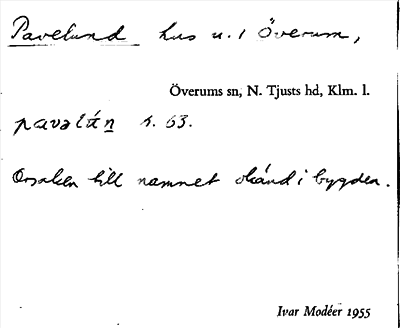 Pavelund hus u. 1 Överum,
Överums sn, N. Tjusts hd, Klm. l.
pavəlún h. 63.
Orsaken till namnet okänd i bygden.
Ivar Modéer 1955